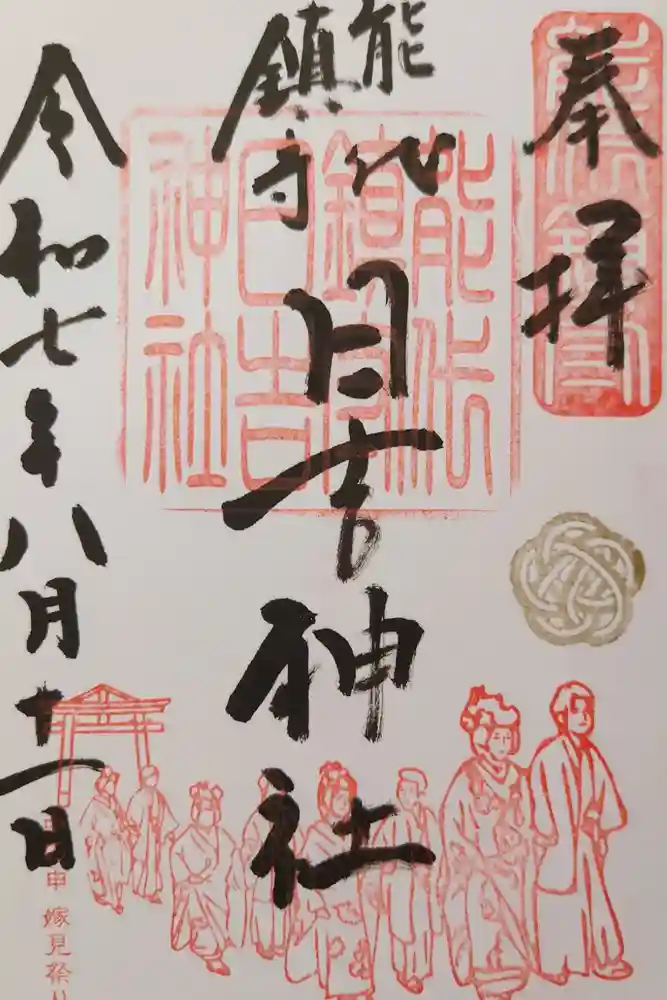 奉拝
能代
鎮守
日吉神社
令和七年八月十一日
能代
鎮守
日吉
神社
申 嫁見祭り